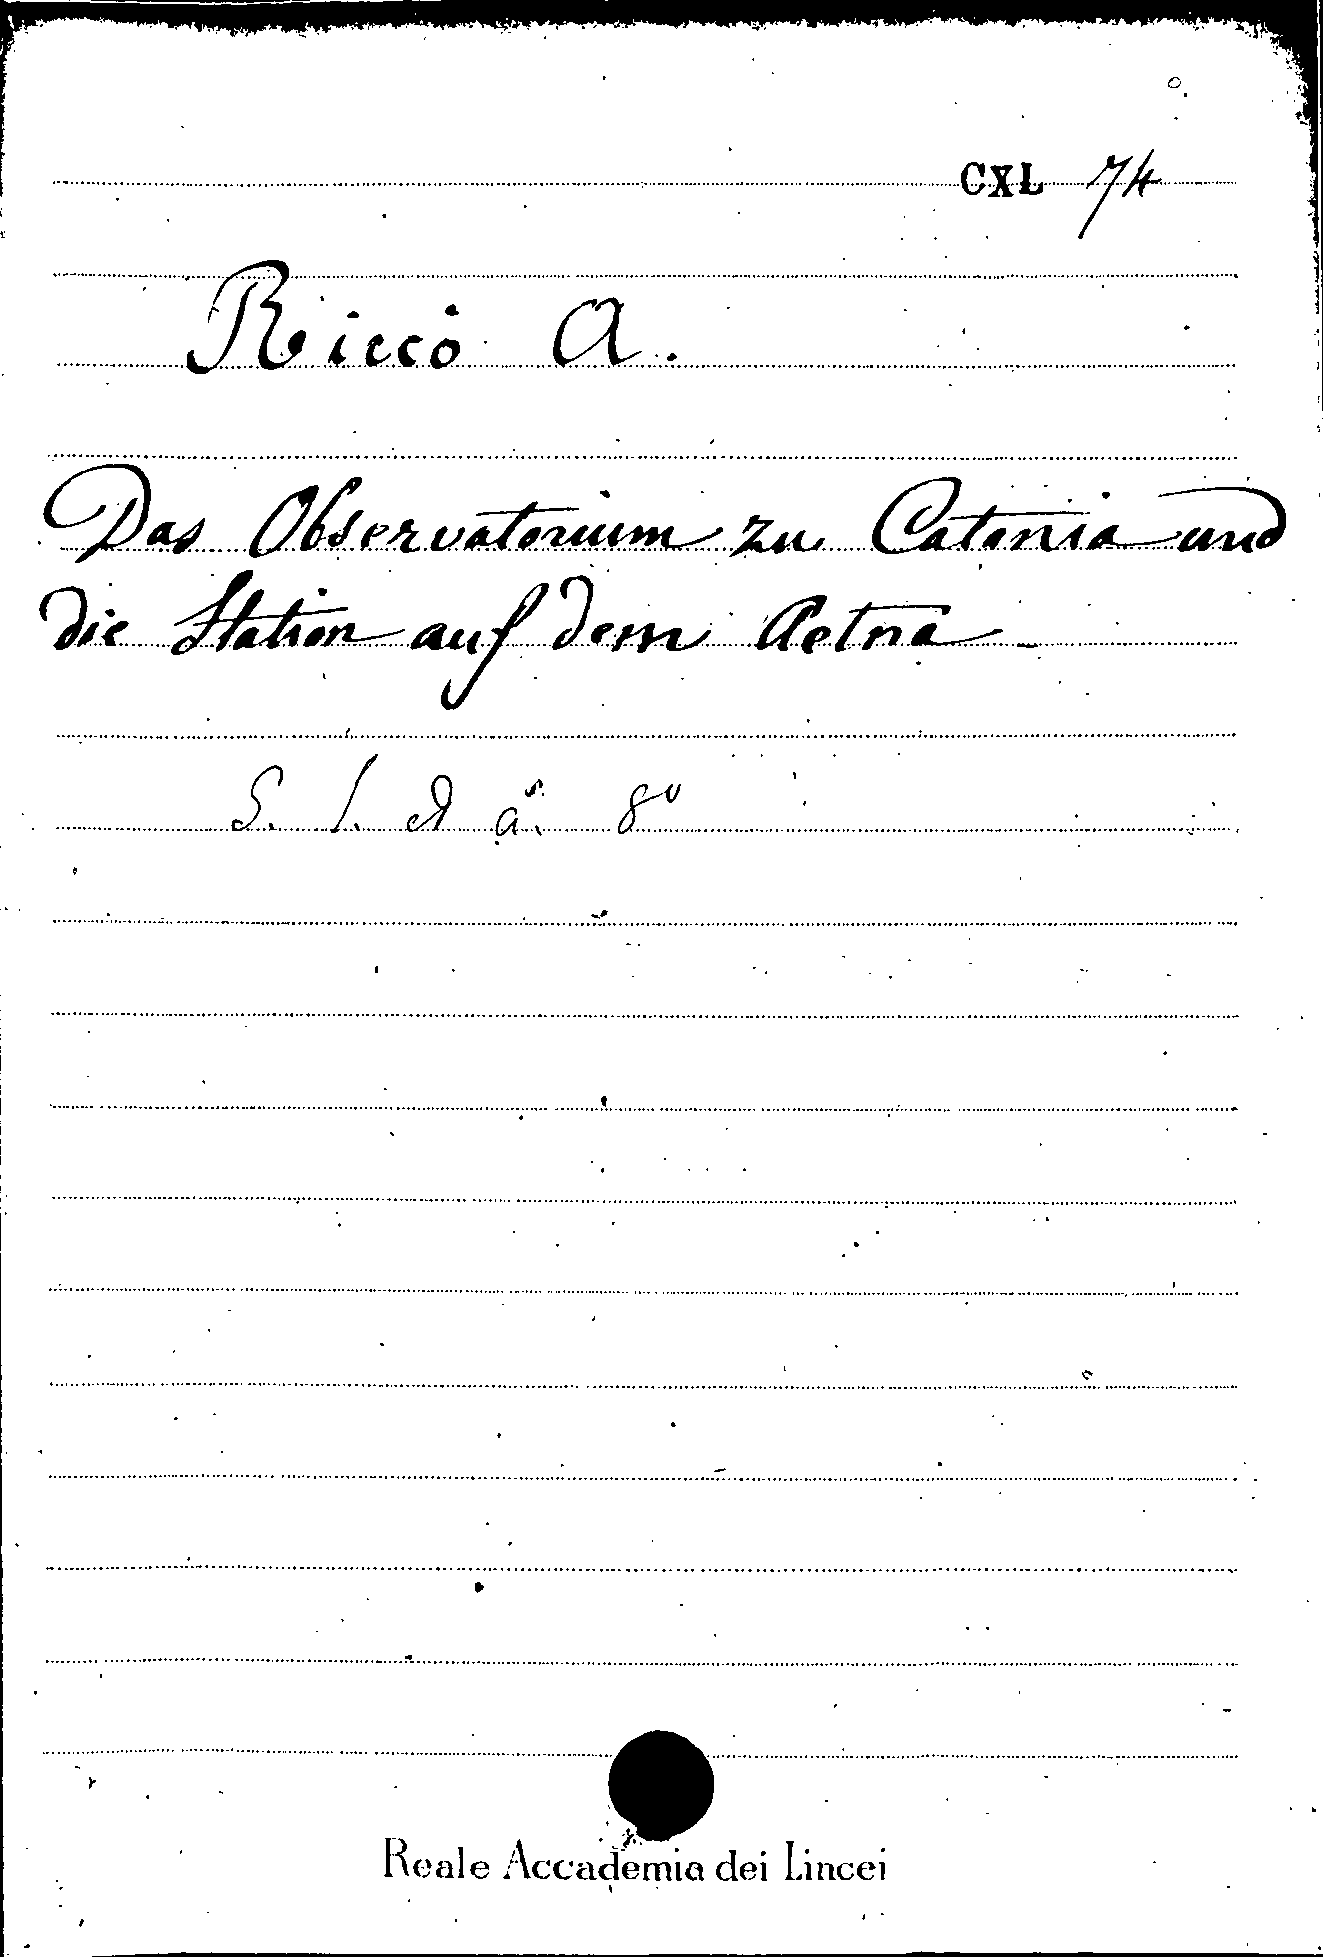 CXL 74
Riccò A.
Das Observatorium zu Catania und
die Station auf dem Aetna
S. l. d a. 8º
Reale Accademia dei Lincei